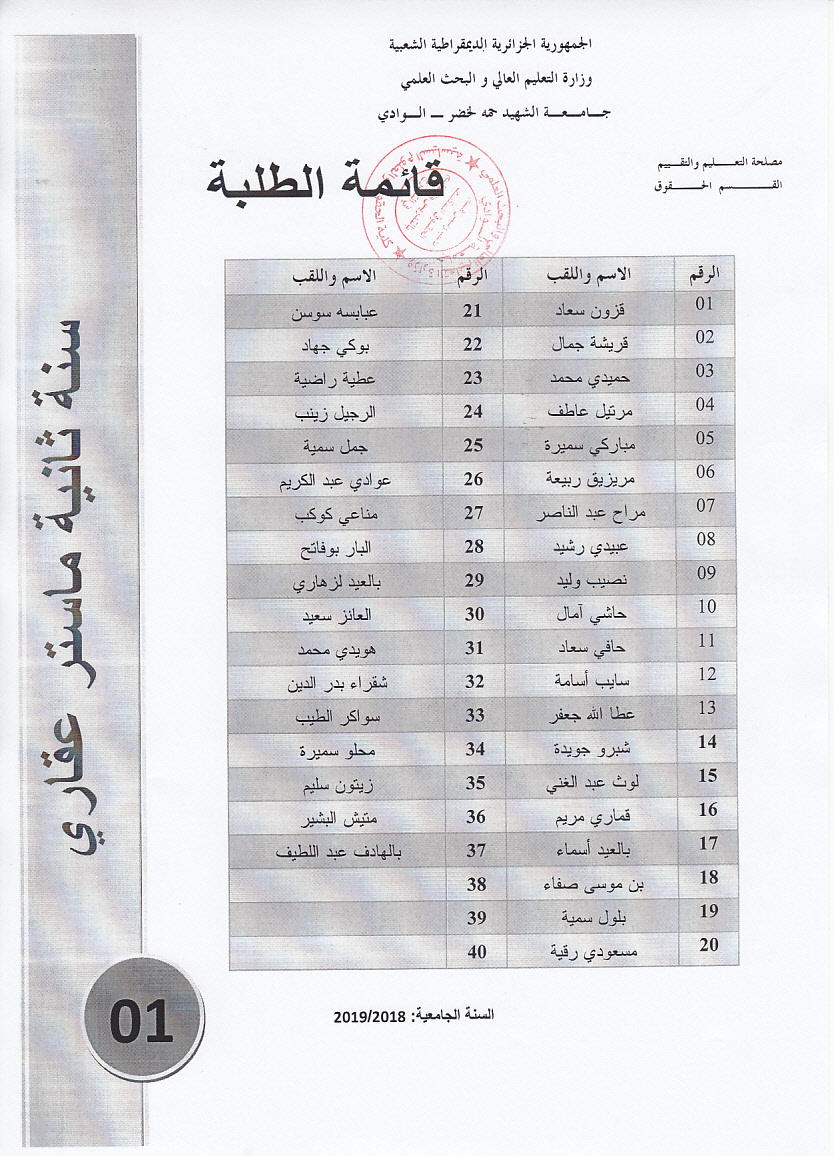 الجمهورية الجزائرية الديمقراطية الشعبية
وزارة التعليم العالي و البحث العلمي
جامعة الشهيد حمه لخضر – الوادي
مصلحة التعليم والتقييم
القسم الحقوق
قائمة الطلبة
الرقم الاسم واللقب الرقم الاسم واللقب
01 قزون سعاد 21 عبابسه سوسن
02 قريشة جمال 22 بوكي جهاد
03 حميدي محمد 23 عطية راضية
04 مرتيل عاطف 24 الرجيل زينب
05 مباركي سميرة 25 جمل سمية
06 مريزيق ربيعة 26 عوادي عبد الكريم
07 مراح عبد الناصر 27 مناعي كوكب
08 عبيدي رشيد 28 البار بوفاتح
09 نصيب وليد 29 بالعيد لزهاري
10 حاشي آمال 30 العانز سعيد
11 حافي سعاد 31 هويدي محمد
12 سايب أسامة 32 شقراء بدر الدين
13 عطا الله جعفر 33 سواكر الطيب
14 شبرو جويدة 34 محلو سميرة
15 لوث عبد الغني 35 زيتون سليم
16 قماري مريم 36 متيش البشير
17 بالعيد أسماء 37 بالهادف عبد اللطيف
18 بن موسى صفاء 38
19 بلول سمية 39
20 مسعودي رقية 40
السنة الجامعية: 2019/2018
سنة ثانية ماستر عقاري
01